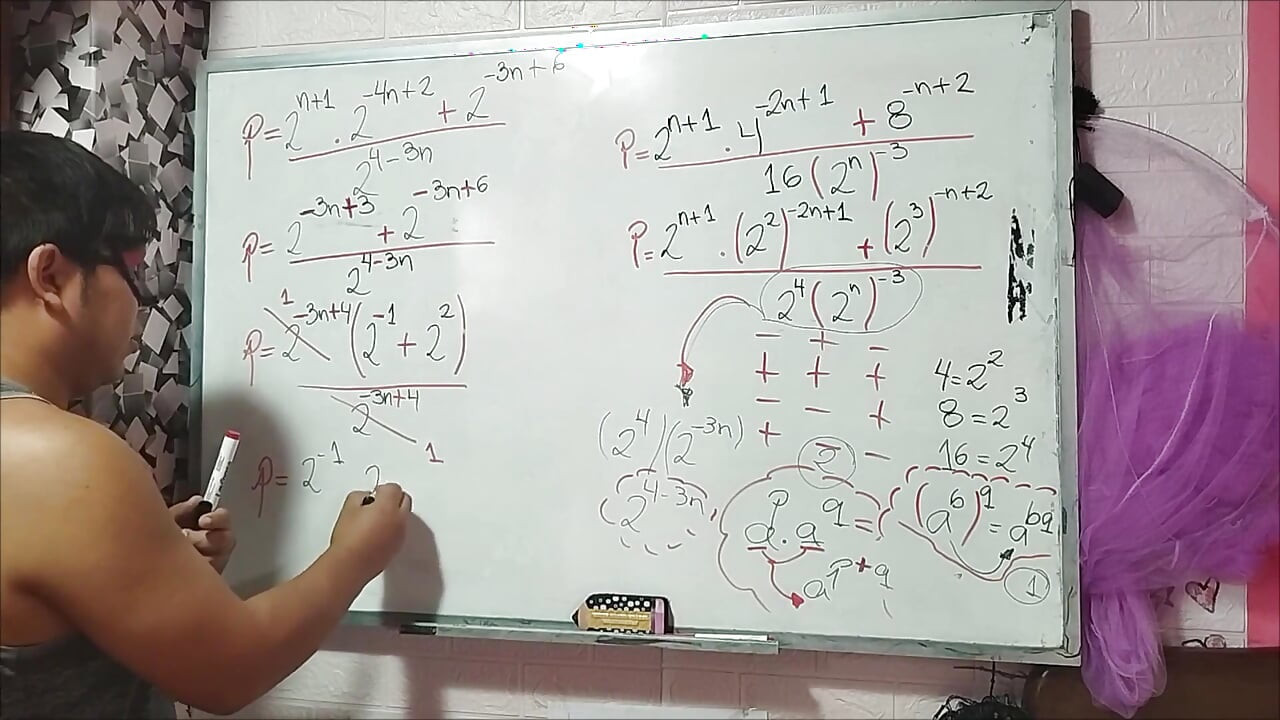 P = 2^{n+1} . 4^{-2n+1} + 8^{-n+2}
16 (2^n)^{-3}
P = 2^{n+1} . (2^2)^{-2n+1} + (2^3)^{-n+2}
2^4 (2^n)^{-3}
- + -
+ + +
- - +
+ - -
(2^4)(2^{-3n})
2^{4-3n}
4=2^2
8=2^3
16=2^4
2
a^p . a^q =
a^{p+q}
(a^b)^q = a^{bq}
1
P = 2^{n+1} . 2^{-4n+2} + 2^{-3n+6}
2^{4-3n}
P = 2^{-3n+3} + 2^{-3n+6}
2^{4-3n}
1
P = 2^{-3n+4} (2^{-1} + 2^2)
2^{-3n+4}
1
P = 2^{-1} 2